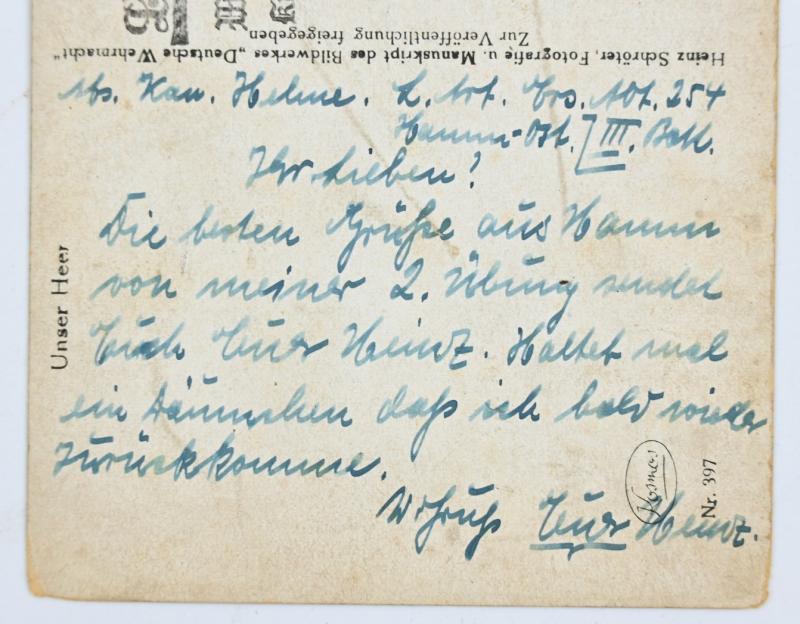 Heinz Schröter, Fotografie u. Manuskript des Bildwerkes „Deutsche Wehrmacht"
Zur Veröffentlichung freigegeben
Abs. Kan. Helme. L. Art. Ers. Abt. 254
Hamm-Ost. III. Batt.
Ihr Lieben!
Die besten Grüße aus Hamm
von meiner 2. Übung sendet
Euch Euer Heinz. Haltet mal
ein Däumchen daß ich bald wieder
zurückkomme.
Gruß Euer Heinz.
Unser Heer
Kosmos
Nr. 397